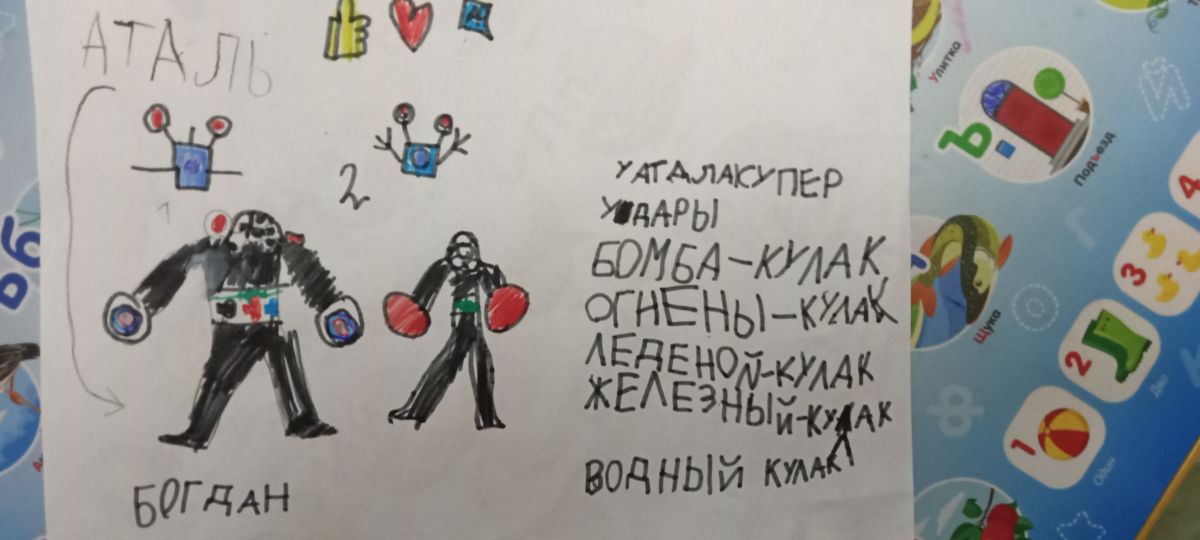 АТАЛЬ
2
БОГДАН
УАТАЛАКУПЕР
УДАРЫ
БОМБА-КУЛАК
ОГНЕНЫ-КУЛАК
ЛЕДЕНОЙ-КУЛАК
ЖЕЛЕЗНЫЙ-КУЛАК
ВОДНЫЙ КУЛАК
Улитка
Ъ
Подъезд
Й
Щука
Ф
4
3
2
Два
1
Один